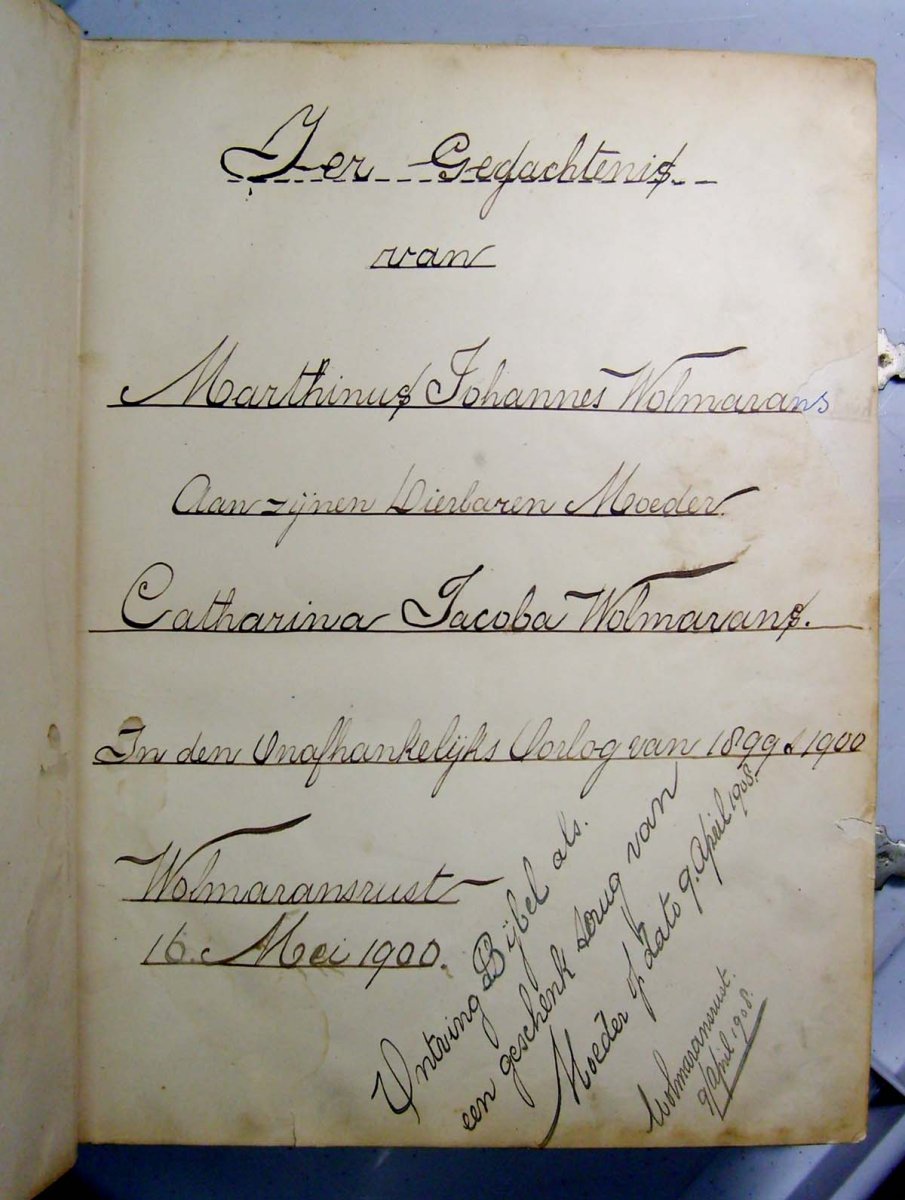 Ter Gedachtenis
van
Marthinus Johannes Wolmarans
Aan zijnen Dierbaren Moeder.
Catharina Jacoba Wolmarans.
In den Onafhankelijks Oorlog van 1899 & 1900
Wolmaransrust
16. Mei 1900.
Ontving Bijbel als.
een geschenk terug van
Moeder op dato 9. April 1908.
Wolmaransrust.
9/April 1908.